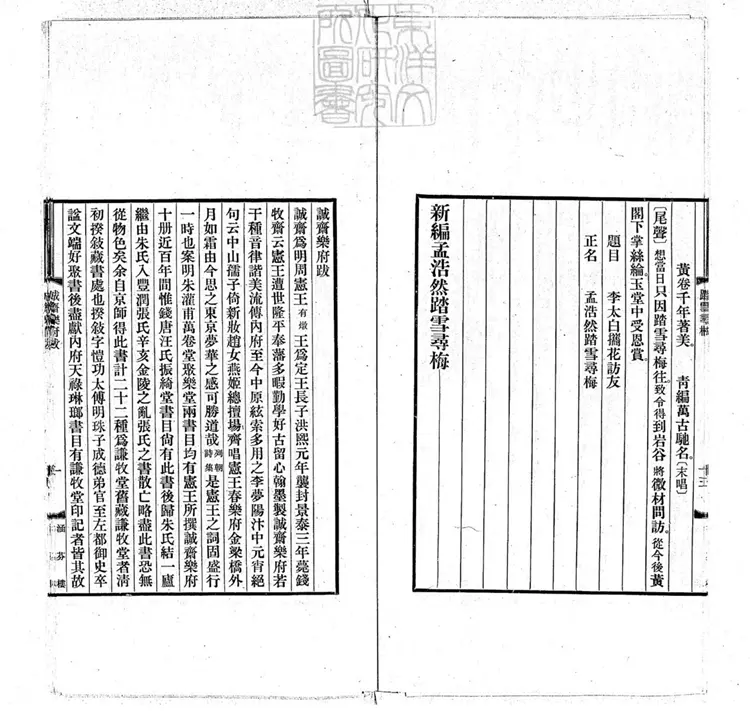 東洋文
化研究
所圖書
黃卷千年著美。 青編萬古馳名。(末唱)
〔尾聲〕想當日只因踏雪尋梅往。致令得到岩谷將微材問訪。從今後黃
閣下掌絲綸。玉堂中受恩賞。
題目 李太白攜花訪友
正名 孟浩然踏雪尋梅
新編孟浩然踏雪尋梅
誠齋樂府跋
誠齋爲明周憲王有燉王爲定王長子洪熙元年襲封景泰三年薨錢
牧齋云憲王遭世隆平奉藩多暇勤學好古留心翰墨製誠齋樂府若
干種音律諧美流傳內府至今中原絃索多用之李夢陽汴中元宵絕
句云中山孺子倚新妝趙女燕姬總擅場齊唱憲王春樂府金梁橋外
月如霜由今思之東京夢華之感可勝道哉列朝詩集是憲王之詞固盛行
一時也案明朱灌甫萬卷堂聚樂堂兩書目均有憲王所撰誠齋樂府
十册近百年間惟錢唐汪氏振綺堂書目尙有此書後歸朱氏結一廬
繼由朱氏入豐潤張氏辛亥金陵之亂張氏之書散亡略盡此書恐無
從物色矣余自京師得此書計二十二種爲謙牧堂舊藏謙牧堂者淸
初揆敍藏書處也揆敍字愷功太傅明珠子成德弟官至左都御史卒
諡文端好聚書後盡獻內府天祿琳瑯書目有謙牧堂印記者皆其故
誠齋樂府跋
一
涵芬樓